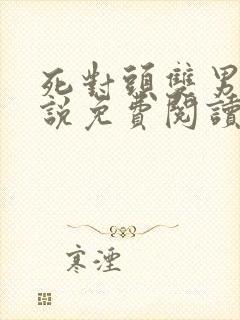 死對頭雙男
說免費閱讀
寒湮